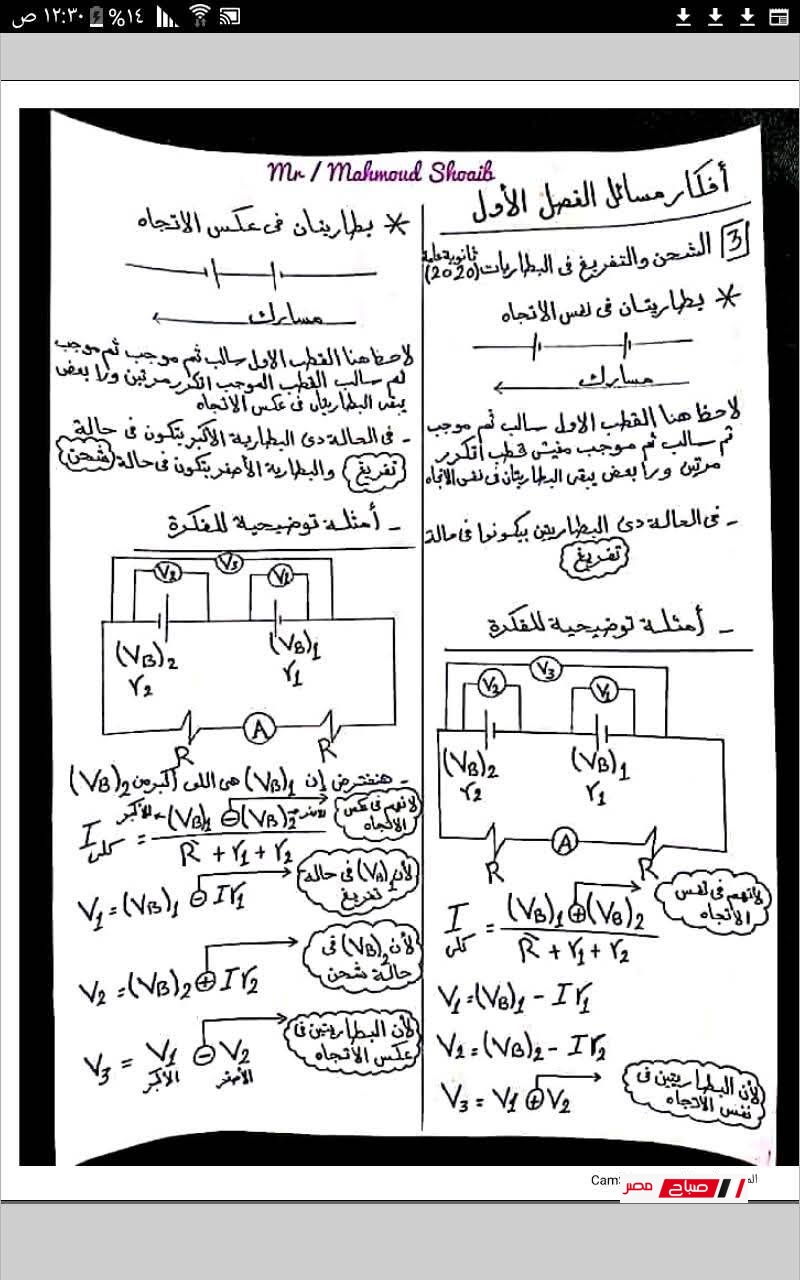 ١٢:٣٠ ص
%١٤
Mr / Mahmoud Shoaib
أفكار مسائل الفصل الأول
3 الشحن والتفريغ فى البطاريات ثانوية عامة (2020)
* بطاريتان فى نفس الاتجاه
مسارك
لاحظ هنا القطب الاول سالب ثم موجب
ثم سالب ثم موجب مفيش قطب اتكرر
مرتين ورا بعض يبقى البطاريتان فى نفس الاتجاه
- فى الحالة دى البطاريتين بيكونوا فى حالة
تفريغ
- أمثلة توضيحية للفكرة
V₃
V₂ V₁
(V_B)₂ (V_B)₁
r₂ r₁
A
R R
I كلى = (V_B)₁ ⊕ (V_B)₂ / R̀ + r₁ + r₂
لانهم فى نفس
الاتجاه
V₁ = (V_B)₁ - Ir₁
V₂ = (V_B)₂ - Ir₂
V₃ = V₁ ⊕ V₂
لأن البطاريتين فى
نفس الاتجاه
* بطاريتان فى عكس الاتجاه
مسارك
لاحظ هنا القطب الاول سالب ثم موجب ثم موجب
ثم سالب القطب الموجب اتكرر مرتين ورا بعض
يبقى البطاريتان فى عكس الاتجاه
- فى الحالة دى البطارية الأكبر بتكون فى حالة
تفريغ والبطارية الأصغر بتكون فى حالة شحن
- أمثلة توضيحية للفكرة
V₃
V₂ V₁
(V_B)₂ (V_B)₁
r₂ r₁
A
R R
- هنفترض إن (V_B)₁ هى اللى أكبر من (V_B)₂
I كلى = الأكبر (V_B)₁ ⊖ (V_B)₂ الأصغر / R̀ + r₁ + r₂
لانهم فى عكس
الاتجاه
V₁ = (V_B)₁ ⊖ Ir₁
لأن (V_B)₁ فى حالة
تفريغ
V₂ = (V_B)₂ ⊕ Ir₂
لأن (V_B)₂ فى
حالة شحن
V₃ = V₁ ⊖ V₂
الأكبر الأصغر
لأن البطاريتين فى
عكس الاتجاه
صباح مصر